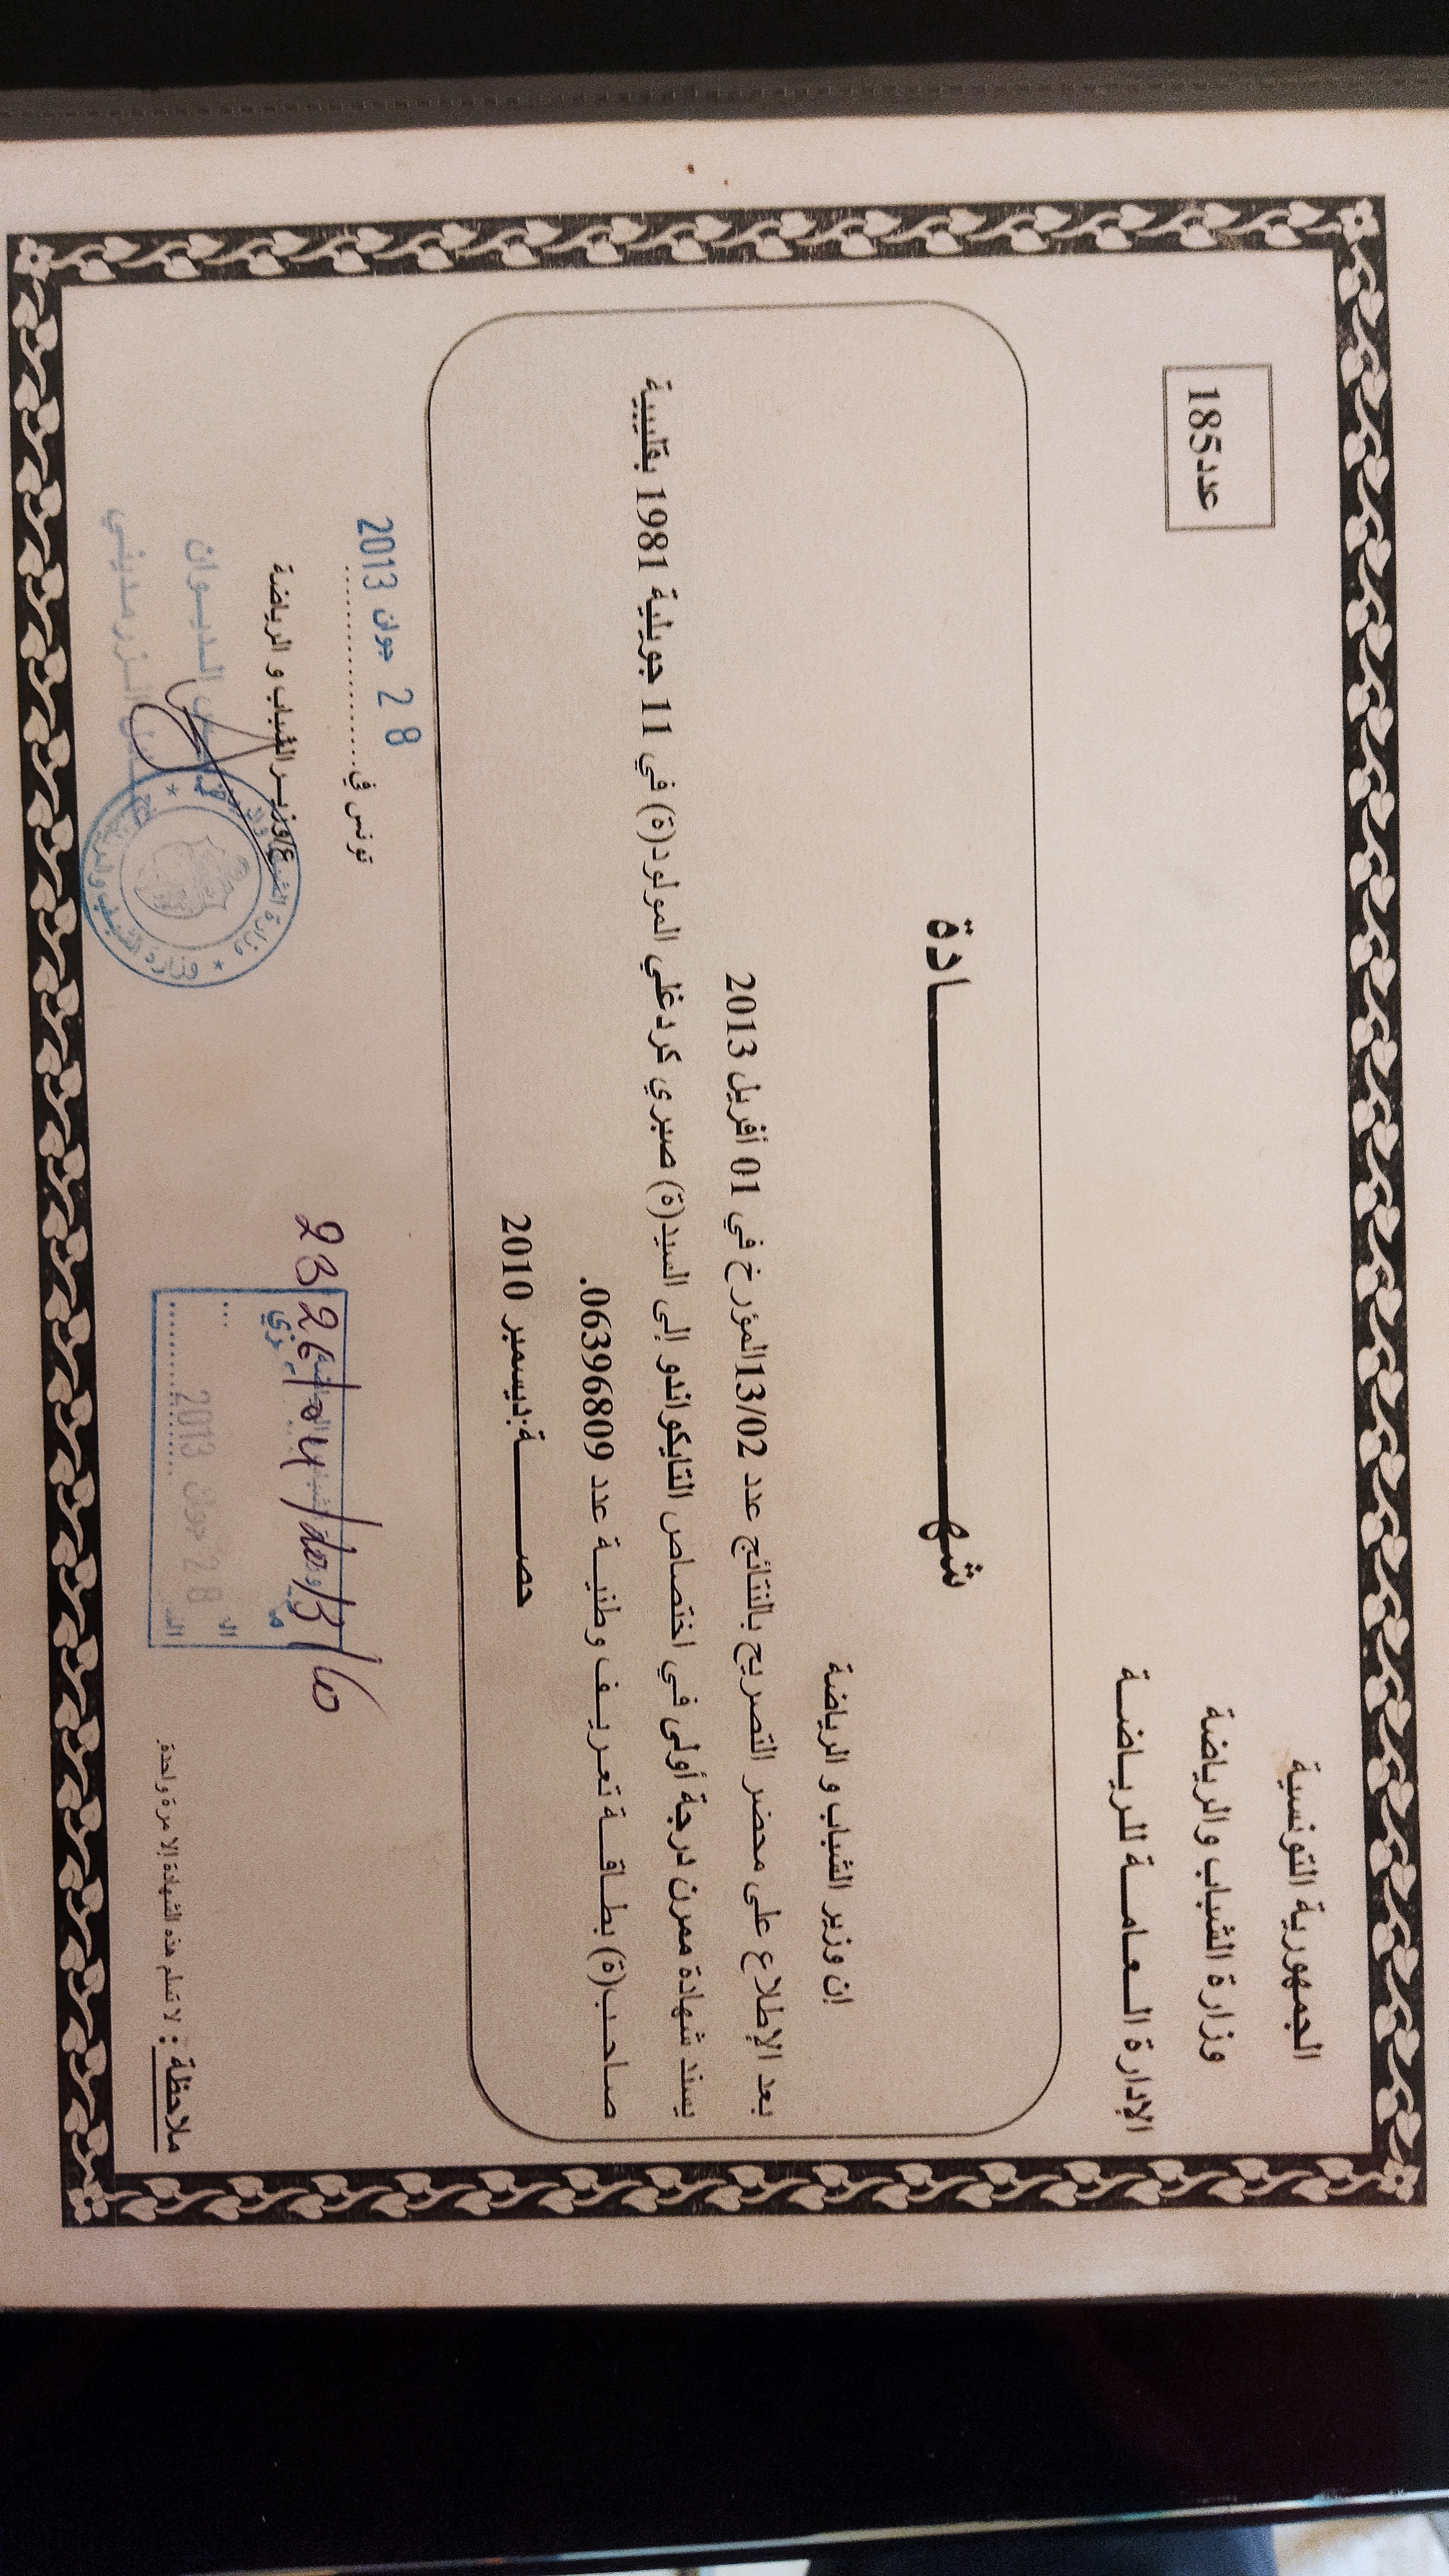 الجمهورية التونسية
وزارة الشباب والرياضة
الإدارة العامة للرياضة
عدد185
شهادة
إن وزير الشباب و الرياضة
بعد الإطلاع على محضر التصريح بالنتائج عدد 13/02المؤرخ في 01 أفريل 2013
يسند شهادة ممرن درجة أولى في اختصاص التايكواندو إلى السيد(ة) صبري كردغلي المولود(ة) في 11 جويلية 1981 بقليبية
صاحب(ة) بطاقة تعريف وطنية عدد 06396809.
حصة:ديسمبر 2010
تونس في 28 جوان 2013
ع/وزير الشباب و الرياضة
الديوان
وزارة الشباب والرياضة
28 جوان 2013
ملاحظة : لا تسلم هذه الشهادة إلا مرة واحدة.